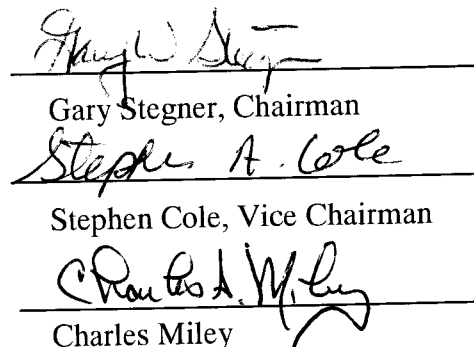 Gary W Stegner
Gary Stegner, Chairman
Stephen A. Cole
Stephen Cole, Vice Chairman
Charles A. Miley
Charles Miley